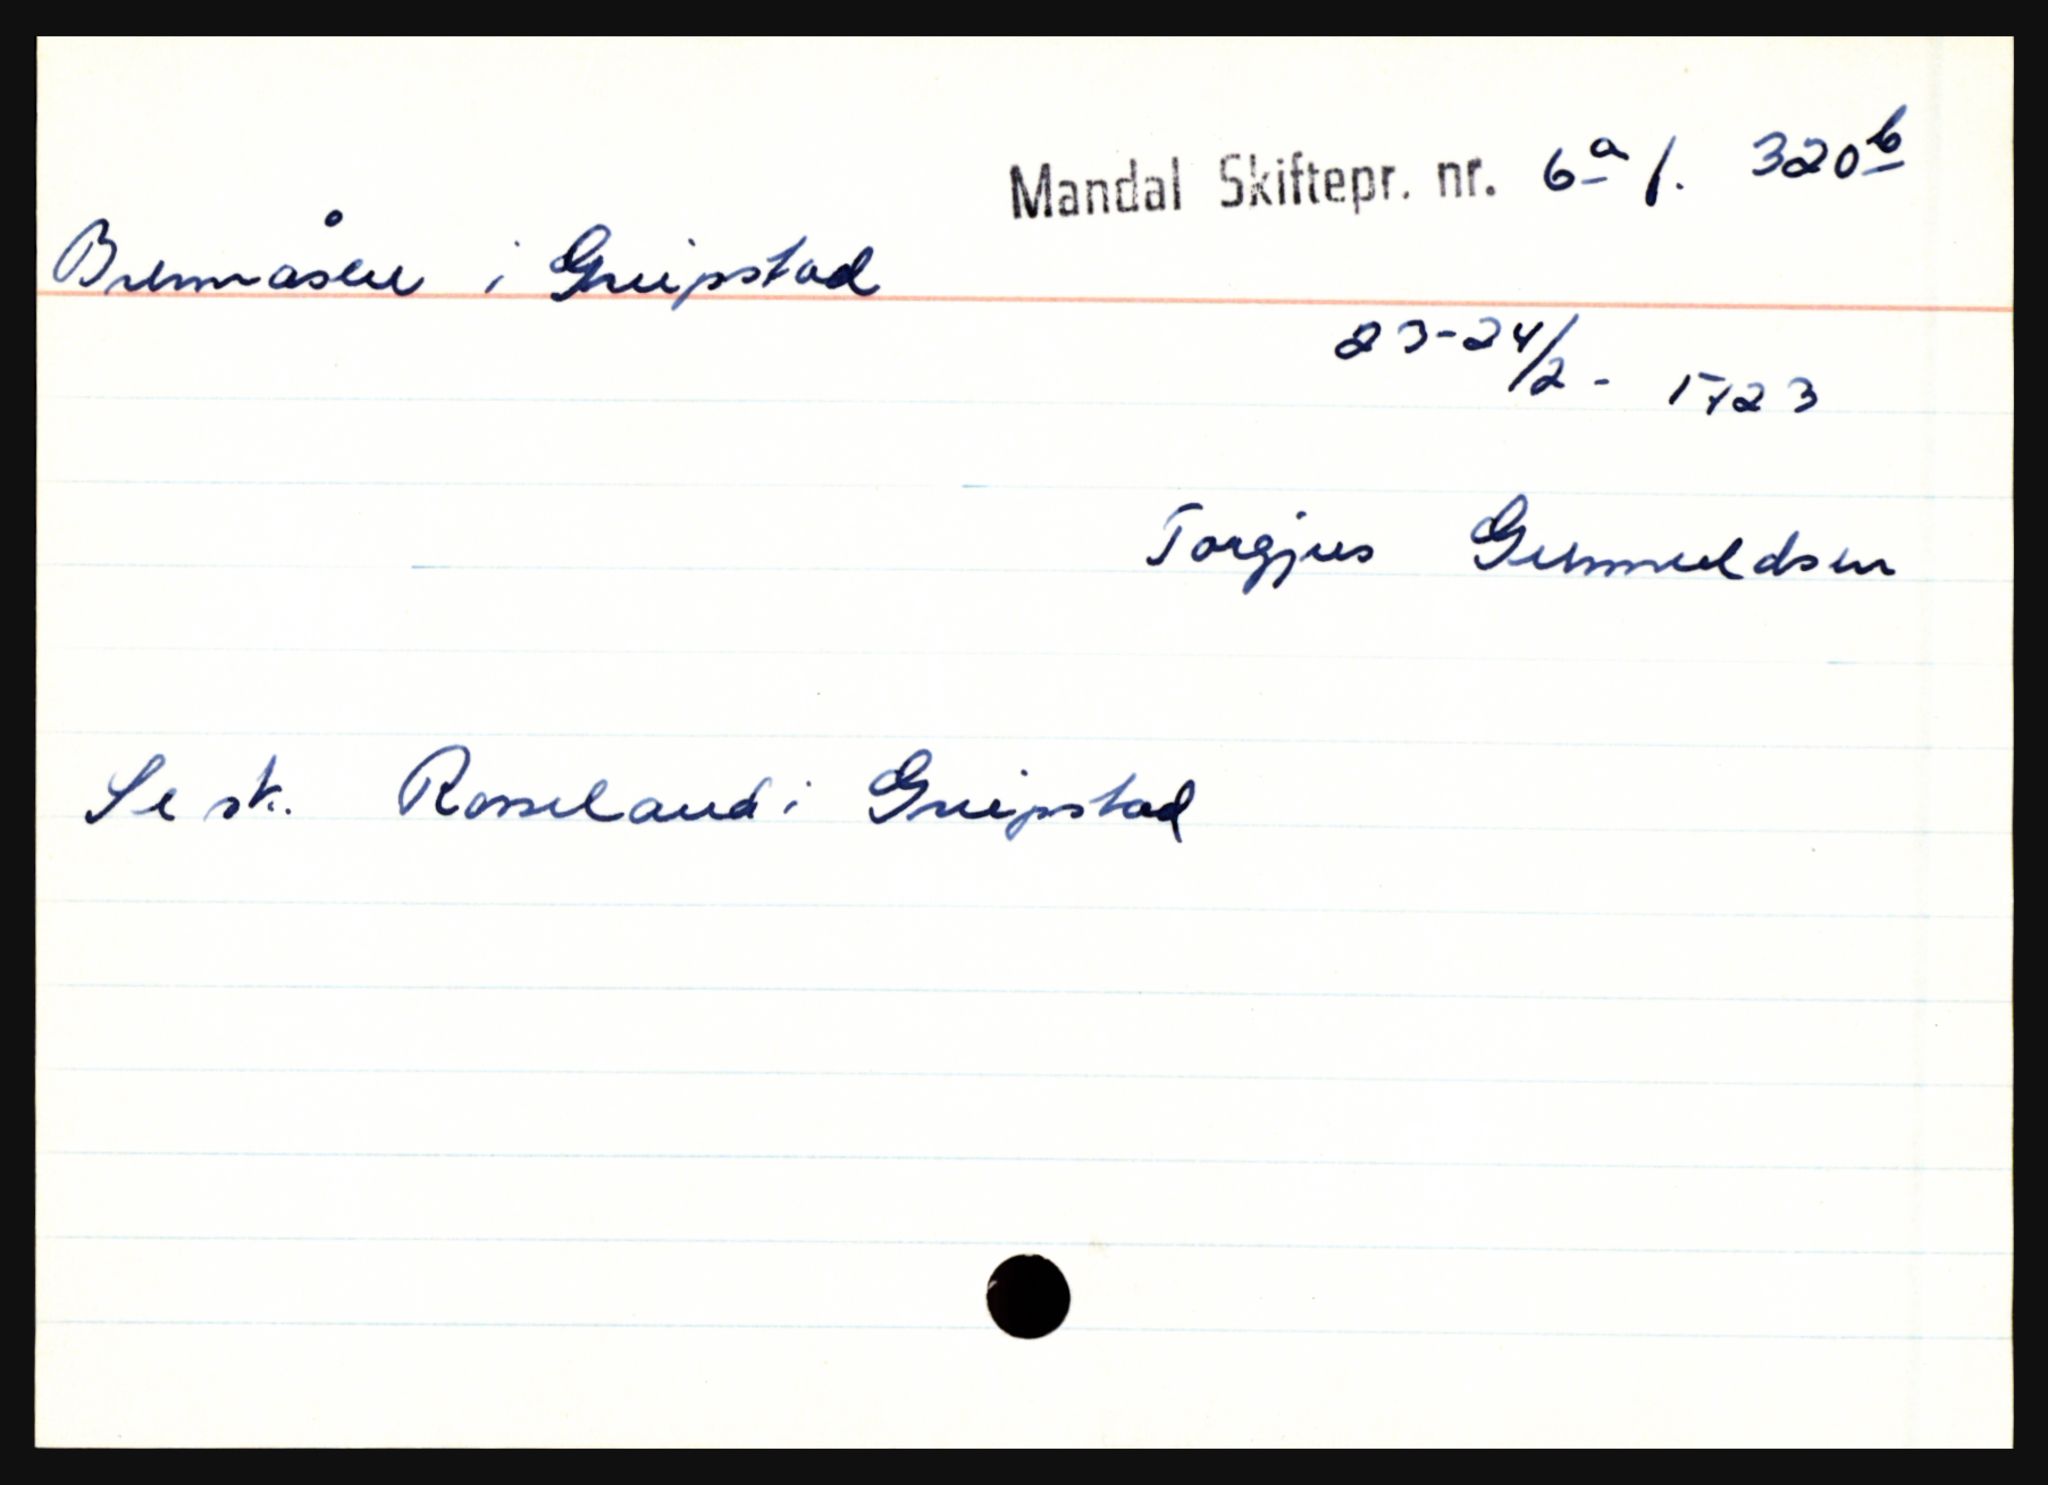 Mandal Skiftepr. nr. 6a f. 320b
Brennåsen i Greipstad
23-24/2 - 1723
Torgjus Gunnuldsen
Se sk. Rosseland i Greipstad